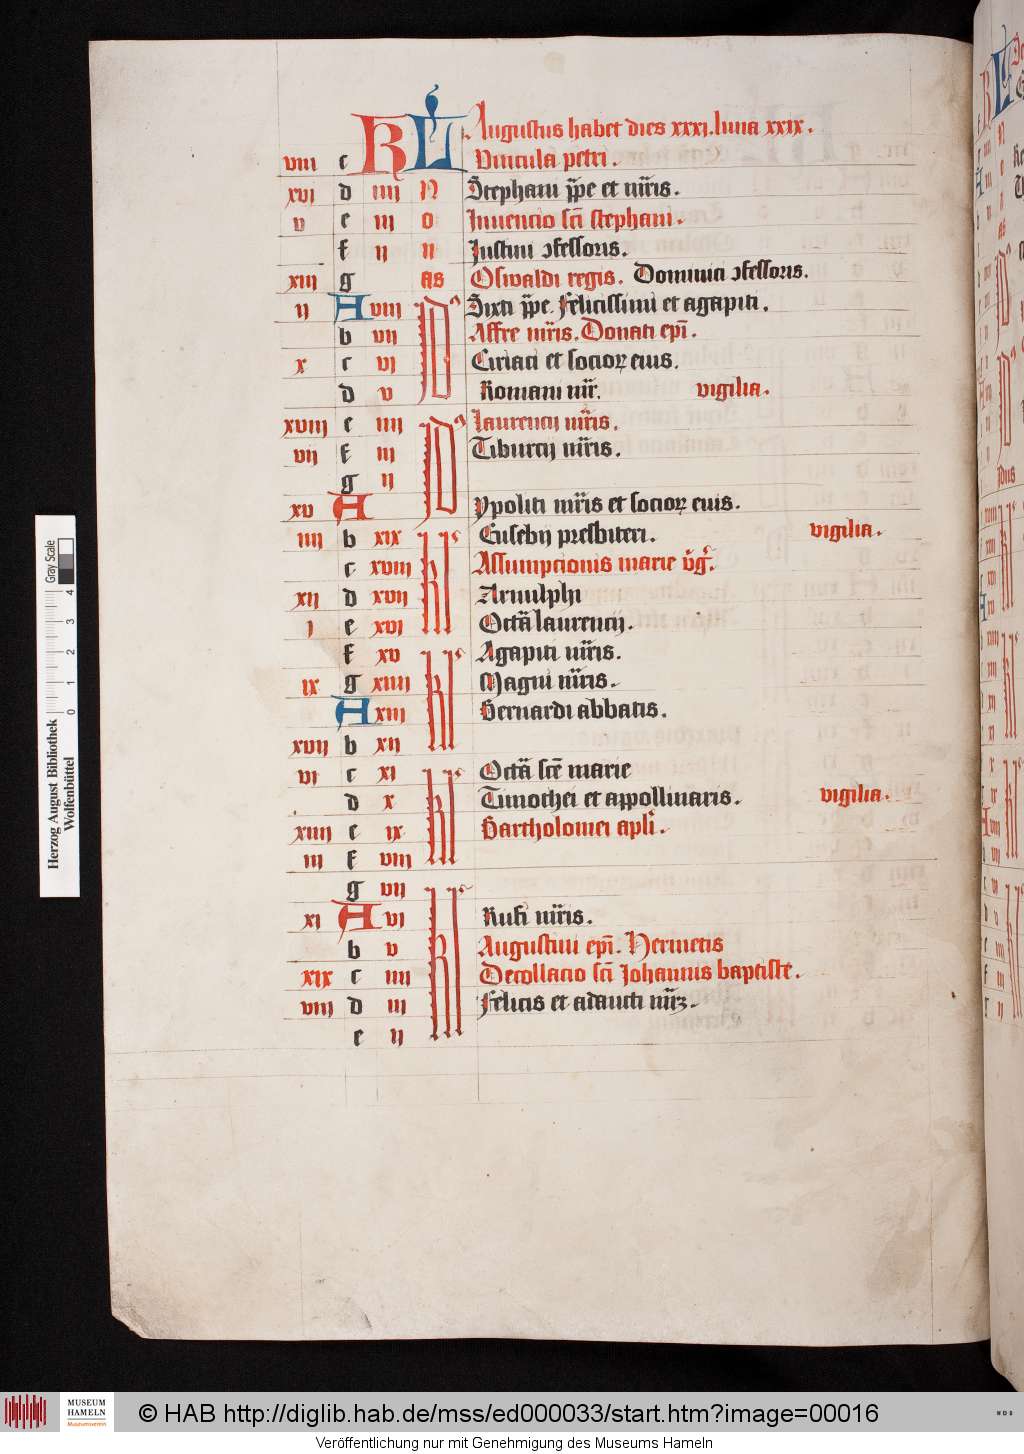 KL Augustus habet dies xxxi. luna xxix.
viii c Vincula petri.
xvi d iiii N Stephani pp̄e et mr̄is.
v e iii o Inuencio sc̄i stephani.
f ii n Iustini ↄfessoris.
xiii g as Oswaldi regis. Dominici ↄfessoris.
ii A viii Sixti pp̄e. felicissimi et agapiti.
b vii Affre mr̄is. Donati ep̄i.
x c vi Ciriaci et socioꝝ eius.
d v Romani mr̄. vigilia.
xviii e iiii Laurencij mr̄is.
vii f iii Tiburcij mr̄is.
g ii
xv A Ypoliti mr̄is et socioꝝ eius.
iiii b xix Eusebij presbiteri. vigilia.
c xviii Assumpcionis marie v̄ḡ.
xii d xvii Arnulphi
i e xvi Octā laurencij.
f xv Agapiti mr̄is.
ix g xiiii Magni mr̄is.
A xiii Bernardi abbatis.
xvii b xii
vi c xi Octā sc̄e marie
d x Timothei et appollinaris. vigilia.
xiiii e ix Bartholomei apl̄i.
iii f viii
g vii
xi A vi Rufi mr̄is.
b v Augustini ep̄i. Hermetis
xix c iiii Decollacio sc̄i Johannis baptiste.
viii d iii Felicis et adaucti mr̄ꝫ.
e ii
Herzog August Bibliothek
Wolfenbüttel
0 1 2 3 4
Gray Scale
MUSEUM
HAMELN
Museumsverein
© HAB http://diglib.hab.de/mss/ed000033/start.htm?image=00016
Veröffentlichung nur mit Genehmigung des Museums Hameln